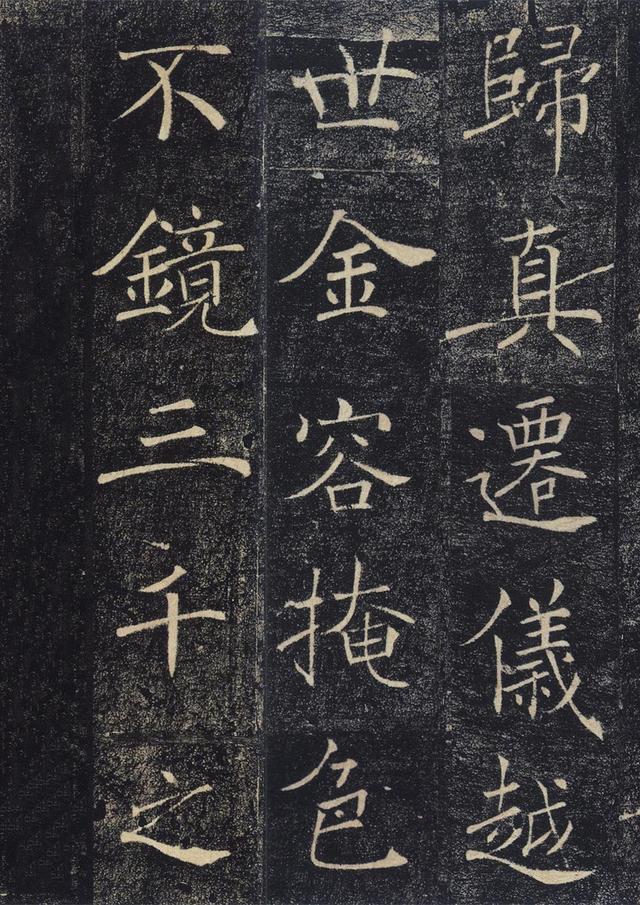 歸真遷儀越
世金容掩色
不鏡三千之